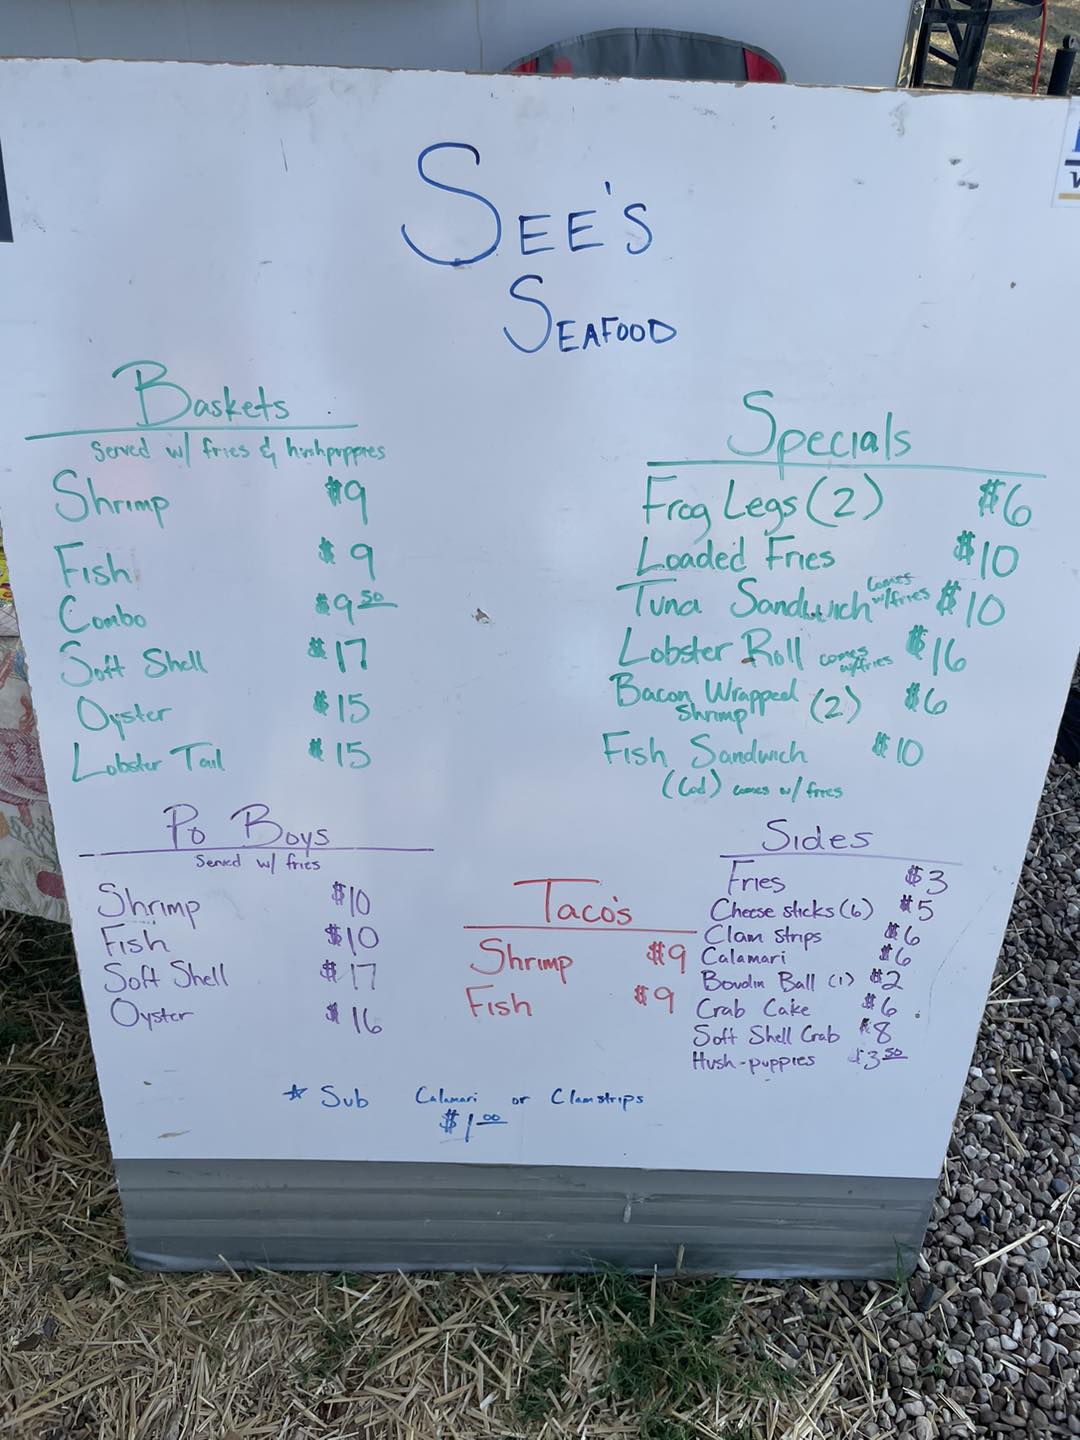 SEE'S
SEAFOOD
Baskets
Served w/ fries & hushpuppies
Shrimp $9
Fish $9
Combo $9 50
Soft Shell $17
Oyster $15
Lobster Tail $15
Specials
Frog Legs (2) $6
Loaded Fries $10
Tuna Sandwich comes w/fries $10
Lobster Roll comes w/fries $16
Bacon Wrapped Shrimp (2) $6
Fish Sandwich $10
(Cod) comes w/ fries
Po Boys
Served w/ fries
Shrimp $10
Fish $10
Soft Shell $17
Oyster $16
Taco's
Shrimp $9
Fish $9
Sides
Fries $3
Cheese sticks (6) $5
Clam strips $6
Calamari $6
Boudin Ball (1) $2
Crab Cake $6
Soft Shell Crab $8
Hush-puppies $3 50
* Sub Calamari or Clam strips
$1 00